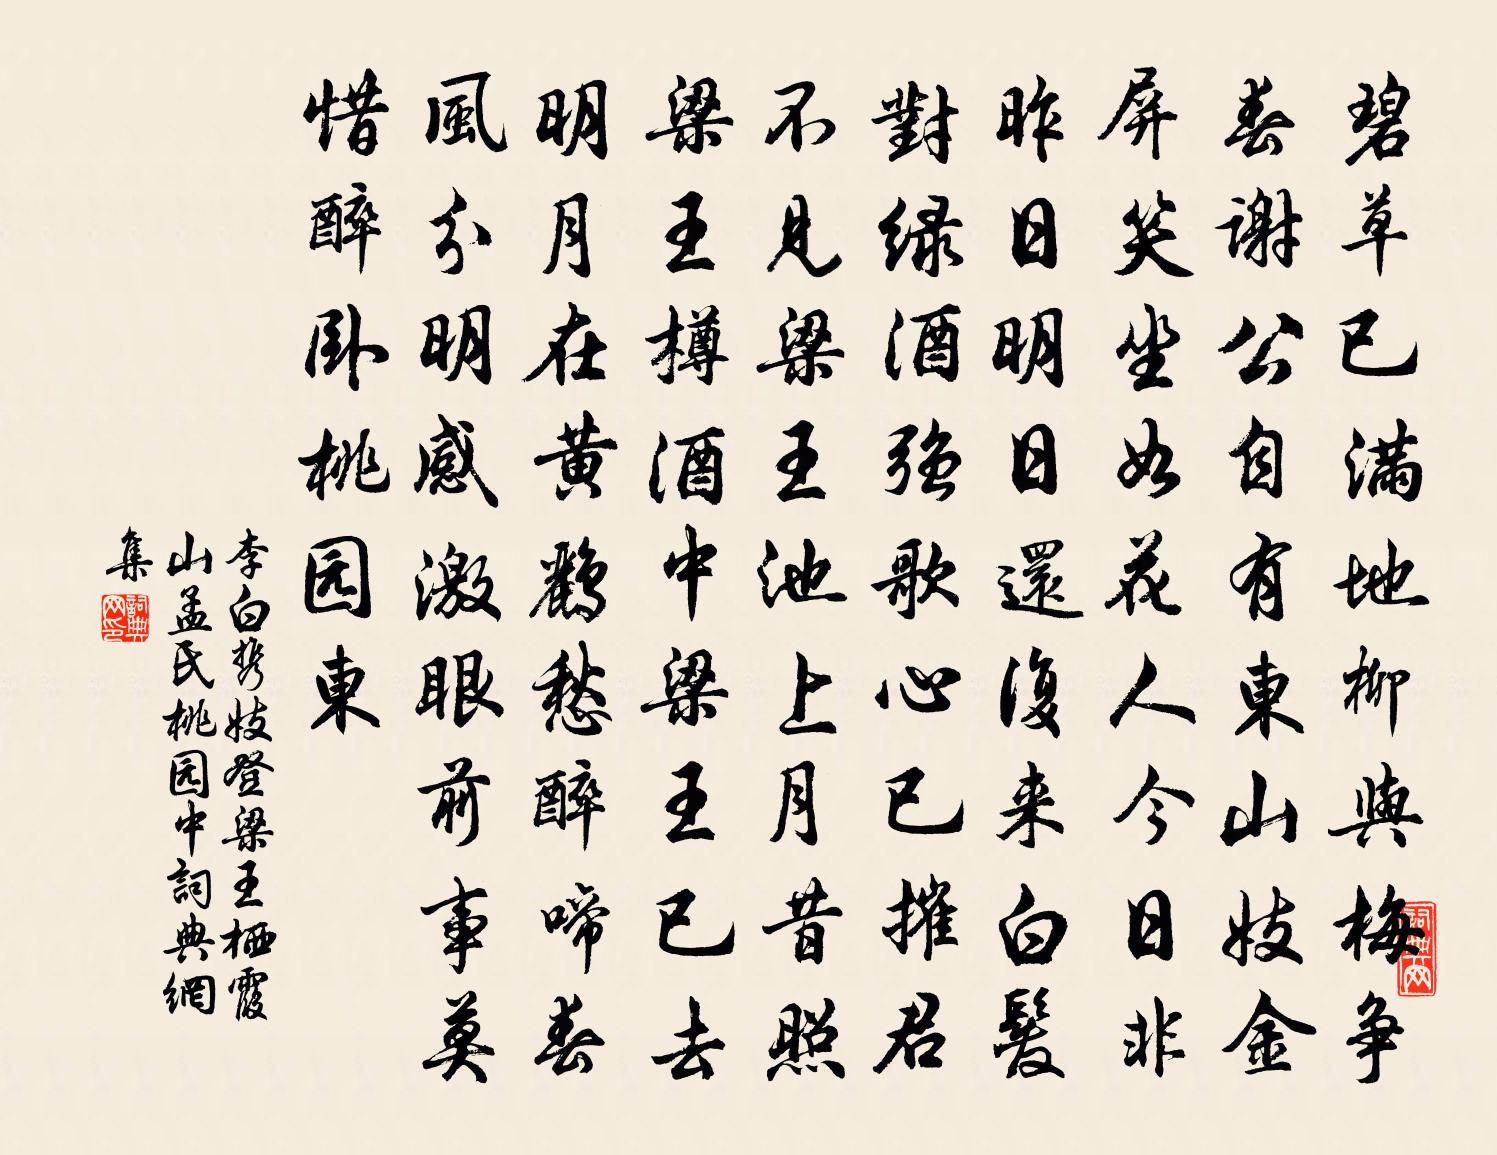 碧草已滿地柳與梅争
春謝公自有東山妓金
屏笑坐如花人今日非
昨日明日還復来白髮
對緑酒强歌心已摧君
不見梁王池上月昔照
梁王樽酒中梁王已去
明月在黄鸝愁醉啼春
風分明感激眼前事莫
惜醉卧桃园東
李白携妓登梁王栖霞
山孟氏桃园中詞典網
集
詞典網印
詞典网